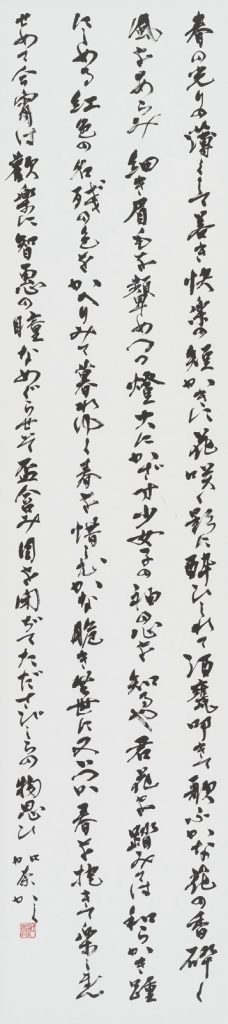 春の光の薄くして若き快楽の短かきに花咲く影に酔ひしれて酒甕叩きて歌ふかな花の香砕く
風をあらみ細き眉毛を顰めつつ燈火にかざす少女子の袖の心を知るや君花を踏みては和らかき踵
にしめる紅色の名残の色をかへりみて暮れゆく春を惜しむかな脆き此世に又いつか春を抱きて楽しまむ
せめて今宵は歓楽に智恵の瞳をめぐらせて盃含み目を閉ぢてたださびしらの物思ひ かく